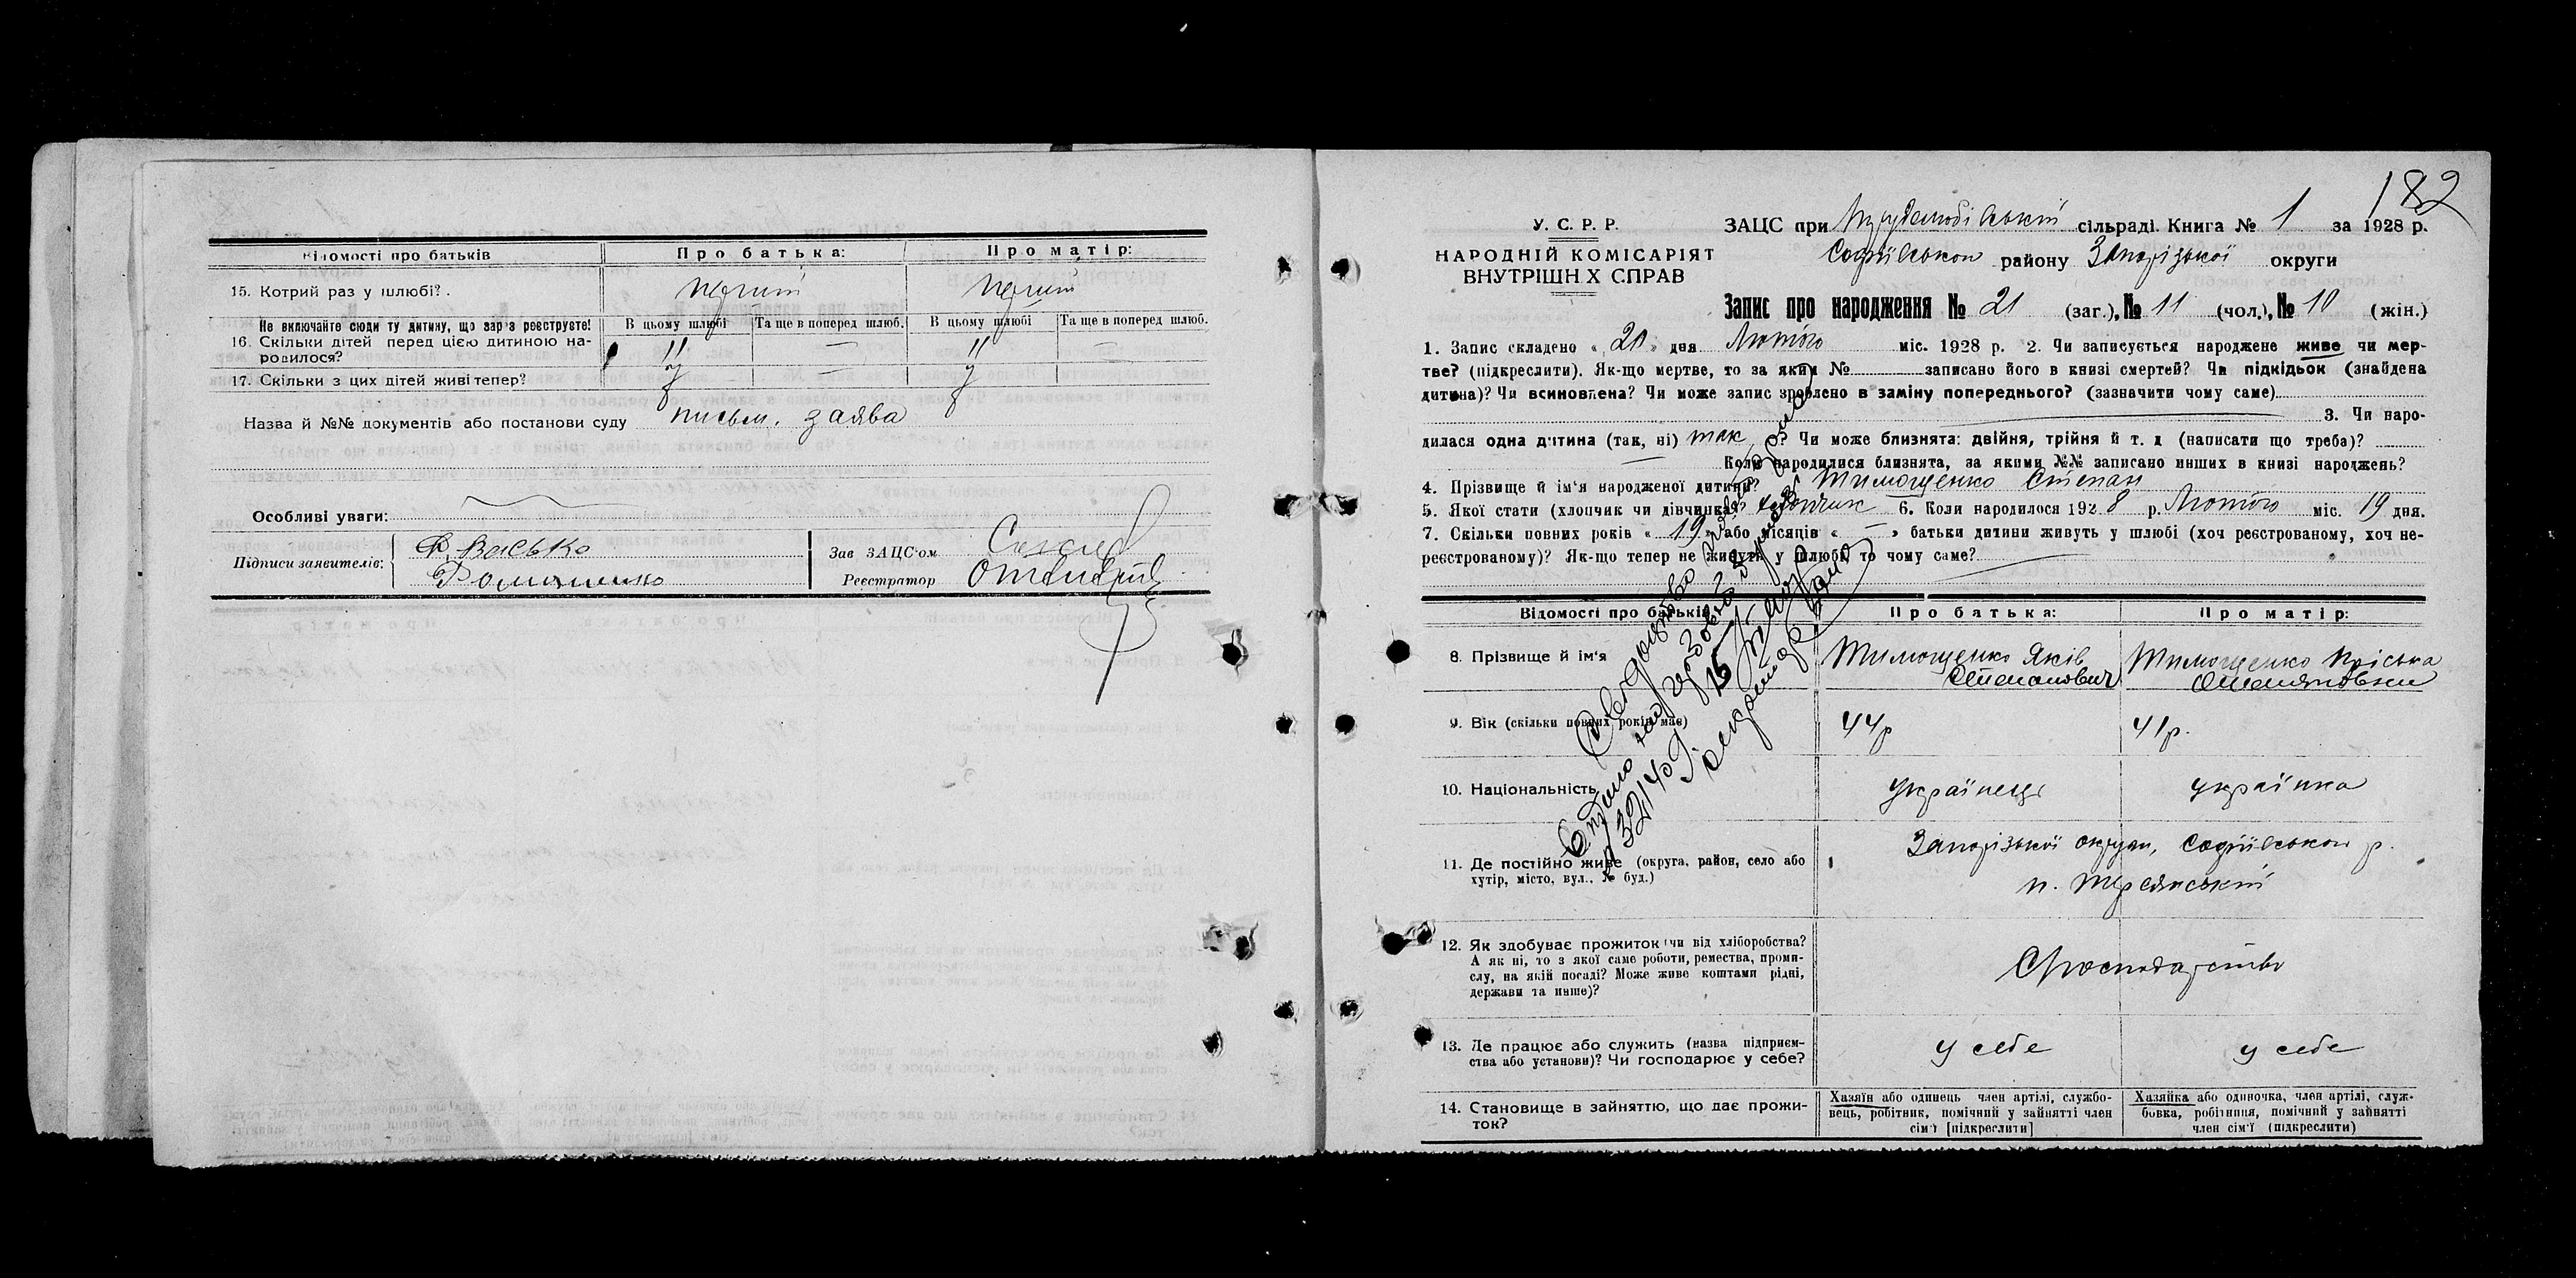 Відомості про батьків Про батька: Про матір:
15. Котрий раз у шлюбі?.
Не включайте сюди ту дитину, що зараз реєструєте! В цьому шлюбі Та ще в поперед шлюб. В цьому шлюбі Та ще в поперед шлюб.
16. Скільки дітей перед цією дитиною на-
родилося? " — " —
17. Скільки з цих дітей живі тепер? —
Назва й №№ документів або постанови суду письм. заява
Особливі уваги:
Підписи заявителів: Васько Зав ЗАЦС'ом
Романенко Реєстратор
182
У. С. Р. Р. ЗАЦС при сільраді. Книга № 1 за 1928 р.
НАРОДНІЙ КОМІСАРІЯТ Софіївського району Запорізької округи
ВНУТРІШН Х СПРАВ
Запис про народження № 21 (заг.), № 11 (чол.), № 10 (жін.)
1. Запис складено « 20 » дня Лютого міс. 1928 р. 2. Чи записується народжене живе чи мер-
тве? (підкреслити). Як-що мертве, то за яким № записано його в книзі смертей? Чи підкідьок (знайдена
дитина)? Чи всиновлена? Чи може запис зроблено в заміну попереднього? (зазначити чому саме)
3. Чи наро-
дилася одна дитина (так, ні) так ? Чи може близнята: двійня, трійня й т. д (написати що треба)?
Коли народилися близнята, за якими №№ записано инших в книзі народжень?
4. Прізвище й ім'я народженої дитини? Тимощенко Степан
5. Якої стати (хлопчик чи дівчинка)? хлопчик 6. Коли народилося 192 8 р. Лютого міс. 19 дня.
7. Скільки повних років « 19 » або місяців « — » батьки дитини живуть у шлюбі (хоч реєстрованому, хоч не-
реєстрованому)? Як-що тепер не живуть у шлюбі, то чому саме?
Відомості про батьків Про батька: Про матір:
8. Прізвище й ім'я Тимощенко Яків Тимощенко Пріська
Степанович Степановна
9. Вік (скільки повних років має) 44р 41р.
10. Національність українець українка
Запорізької округи, Софіївського р.
11. Де постійно живе (округа, район, село або
хутір, місто, вул., № буд.) п. Терсянський
12. Як здобуває прожиток (чи від хліборобства?
А як ні, то з якої саме роботи, ремества, проми-
слу, на якій посаді? Може живе коштами рідні,
держави та инше)?
13. Де працює або служить (назва підприєм-
ства або установи)? Чи господарює у себе? у себе у себе
14. Становище в зайняттю, що дає прожи-
ток?
Хазяїн або одинець член артілі, службо-
вець, робітник, помічний у зайнятті член
сім'ї [підкреслити]
Хазяйка або одиночка, член артілі, служ-
бовка, робітниця, помічний у зайнятті
член сім'ї (підкреслити)